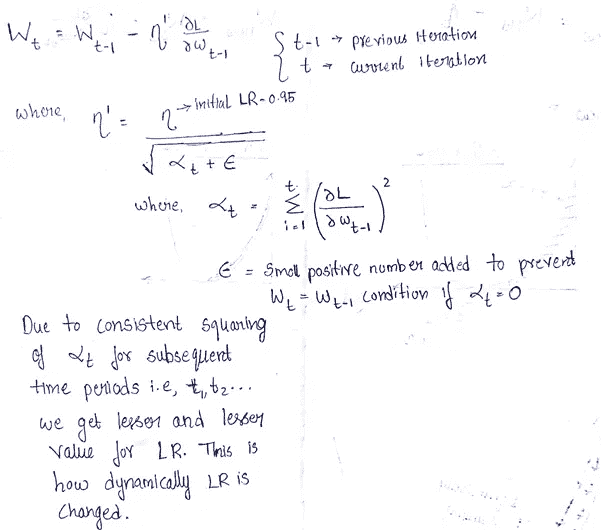 W_t = W_{t-1} - η' ∂L/∂w_{t-1}
{ t-1 → previous iteration
t → current iteration
where, η' = η / √(α_t + ε) → initial LR - 0.95
where, α_t = Σ_{i=1}^{t} (∂L/∂w_{t-1})^2
ε = Small positive number added to prevent
W_t = W_{t-1} condition if α_t = 0
Due to consistent squaring
of α_t for subsequent
time periods i.e, t_1, t_2...
we get lesser and lesser
value for LR. This is
how dynamically LR is
changed.